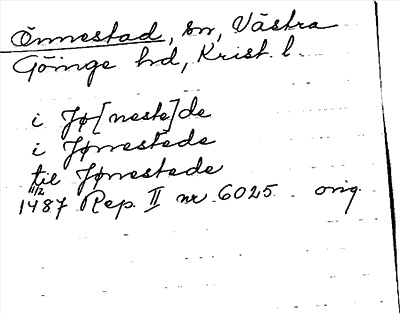 Önnestad, sn, Västra
Göinge hd, Krist. l.
i Jø[neste]de
i Jønestede
til Jønestede
11/12
1487 Rep. II nr 6025 orig.